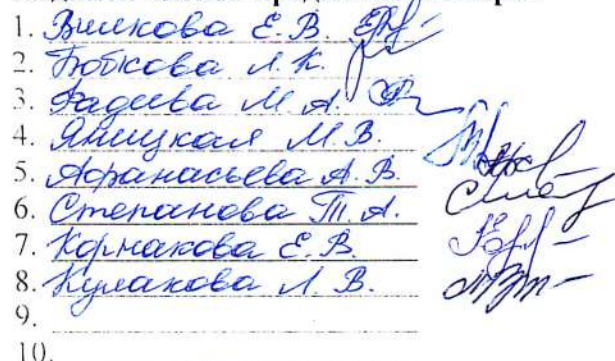 1. Вилкова Е. В.
2. Бобкова Л. К.
3. Фадеева М. А.
4. Яницкая М. В.
5. Афанасьева А. В.
6. Степанова Т. А.
7. Корнакова Е. В.
8. Кулакова Л. В.
9.
10.